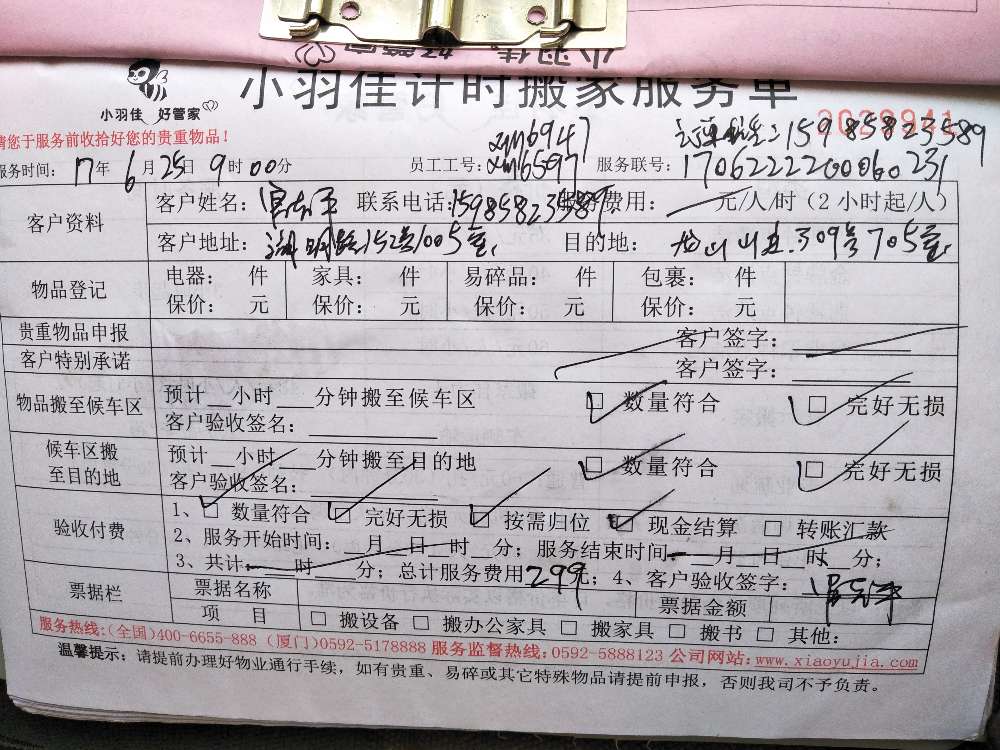 小羽佳计时搬家服务单
小羽佳 好管家
请您于服务前收拾好您的贵重物品!
xm6947 15985823589
服务时间: 17年 6月25日 9时00分 员工工号: xm6597 服务联号: 170622220060231
客户资料 客户姓名: 联系电话: 15985823589 费用: 元/人/时(2小时起/人)
客户地址: 湖明路152号1005室 目的地: 龙山山庄309号705室
物品登记 电器: 件 家具: 件 易碎品: 件 包裹: 件
保价: 元 保价: 元 保价: 元 保价: 元
贵重物品申报 客户签字:
客户特别承诺 客户签字:
物品搬至候车区 预计 小时 分钟搬至候车区 □ 数量符合 □ 完好无损
客户验收签名:
候车区搬至目的地 预计 小时 分钟搬至目的地 □ 数量符合 □ 完好无损
客户验收签名:
验收付费 1、□ 数量符合 □ 完好无损 □ 按需归位 □ 现金结算 □ 转账汇款
2、服务开始时间: 月 日 时 分; 服务结束时间 月 日 时 分;
3、共计 时 分; 总计服务费用299元; 4、客户验收签字:
票据栏 票据名称 票据金额
项 目 □ 搬设备 □ 搬办公家具 □ 搬家具 □ 搬书 □ 其他:
服务热线:(全国)400-6655-888 (厦门)0592-5178888 服务监督热线:0592-5888123 公司网站:www.xiaoyujia.com
温馨提示: 请提前办理好物业通行手续, 如有贵重、易碎或其它特殊物品请提前申报, 否则我司不予负责。